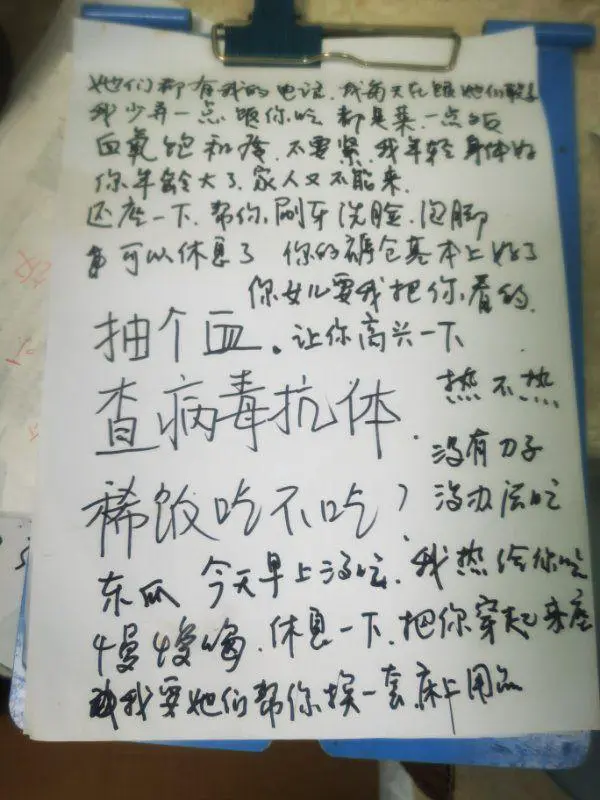 她们都有我的电话.我每天在跟她们联系
我少弄一点饭你吃 都是菜.一点饭
血氧饱和度.不要紧.我年轻身体好
你年龄大了.家人又不能来.
还座一下.帮你刷牙洗脸.泡脚
可以休息了 你的褥仓基本上好了
你女儿要我把你看的.
抽个血。让你高兴一下
查病毒抗体
热不热
没有刀子
稀饭吃不吃?
没办法吃
东瓜 今天早上没吃.我热给你吃
慢慢喝.休息一下.把你穿起来座
我要她们帮你换一套床上用品